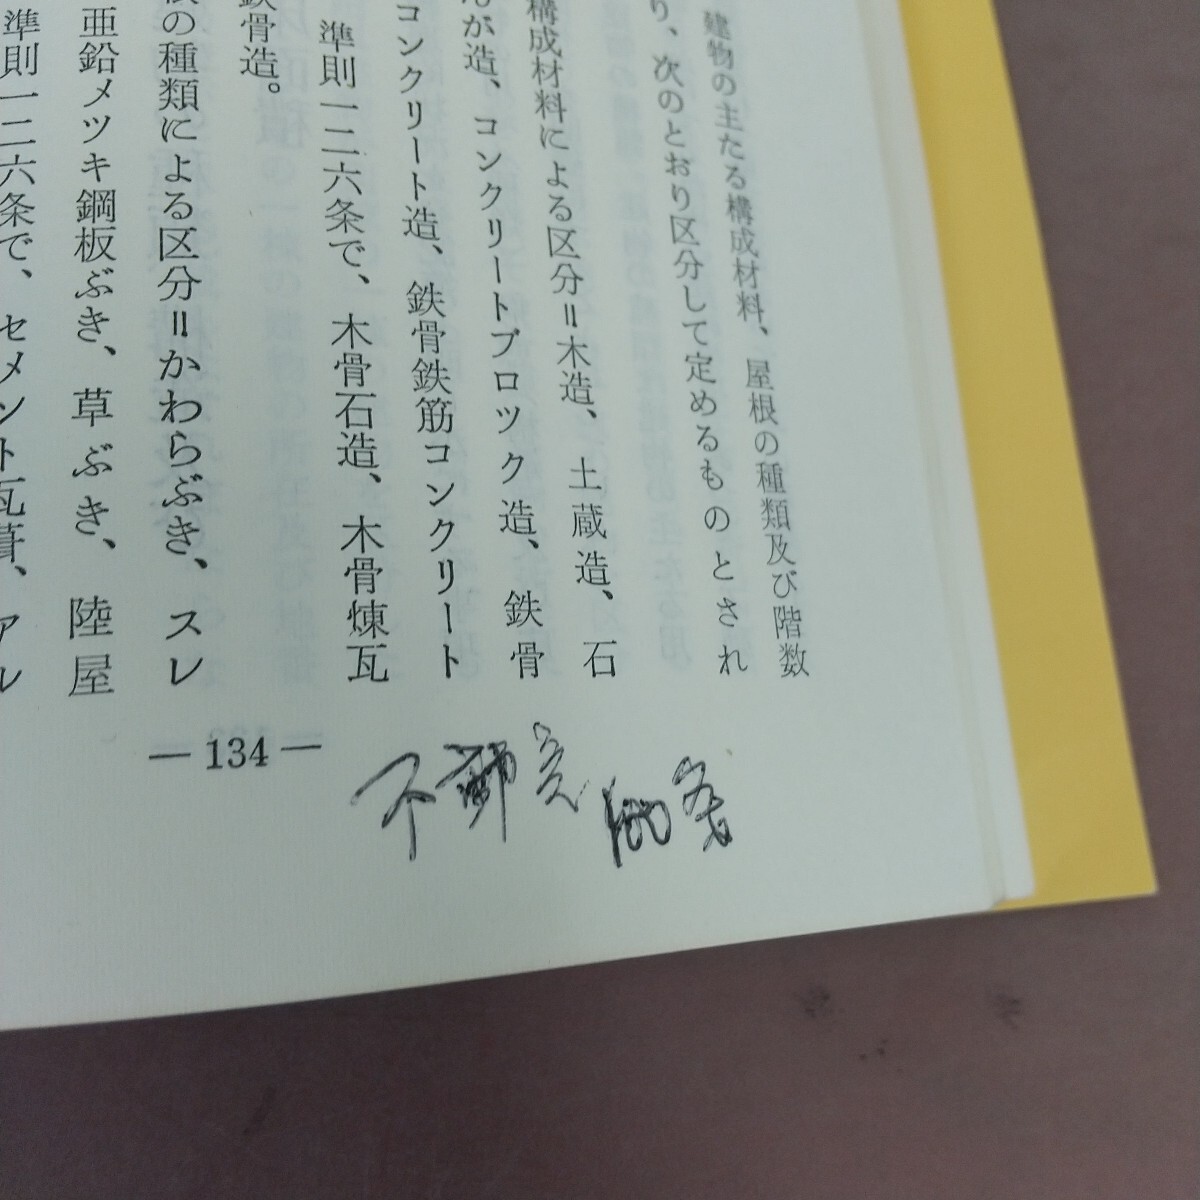 建物の主たる構成材料、屋根の種類及び階数
り、次のとおり区分して定めるものとされ
構成材料による区分＝木造、土蔵造、石
が造、コンクリートブロツク造、鉄骨
コンクリート造、鉄骨鉄筋コンクリート
準則一二六条で、木骨石造、木骨煉瓦
鉄骨造。
根の種類による区分＝かわらぶき、スレ
亜鉛メツキ鋼板ぶき、草ぶき、陸屋
準則一二六条で、セメント瓦葺、アル
— 134 —